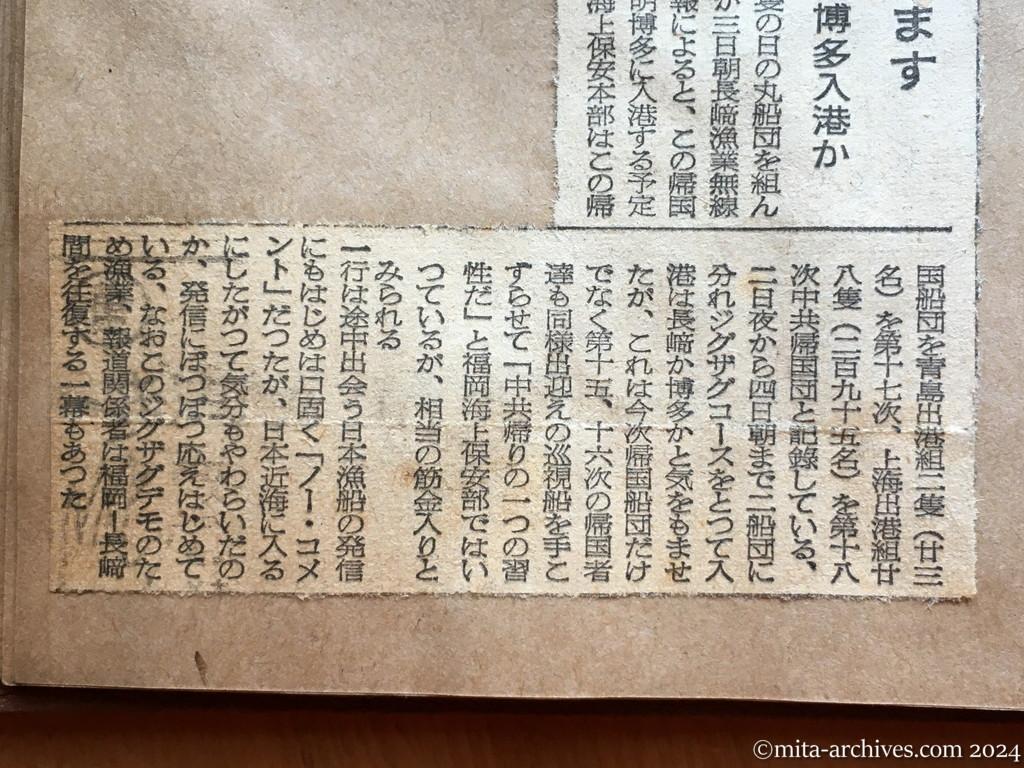 ます
博多入港か
隻の日の丸船団を組ん
が三日朝長崎漁業無線
報によると、この帰国
明博多に入港する予定
海上保安本部はこの帰
国船団を青島出港組二隻(廿三
名)を第十七次、上海出港組廿
八隻(二百九十五名)を第十八
次中共帰国団と記録している、
二日夜から四日朝まで二船団に
分れジグザグコースをとつて入
港は長崎か博多かと気をもませ
たが、これは今次帰国船団だけ
でなく第十五、十六次の帰国者
達も同様出迎えの巡視船を手こ
ずらせて「中共帰りの一つの習
性だ」と福岡海上保安部ではい
つているが、相当の筋金入りと
みられる
一行は途中出会う日本漁船の発信
にもはじめは口固く「ノー・コメ
ント」だつたが、日本近海に入る
にしたがつて気分もやわらいだの
か、発信にぼつぼつ応えはじめて
いる、なおこのジグザグデモのた
め漁業、報道関係者は福岡ー長崎
間を往復する一幕もあつた
©mita-archives.com 2024